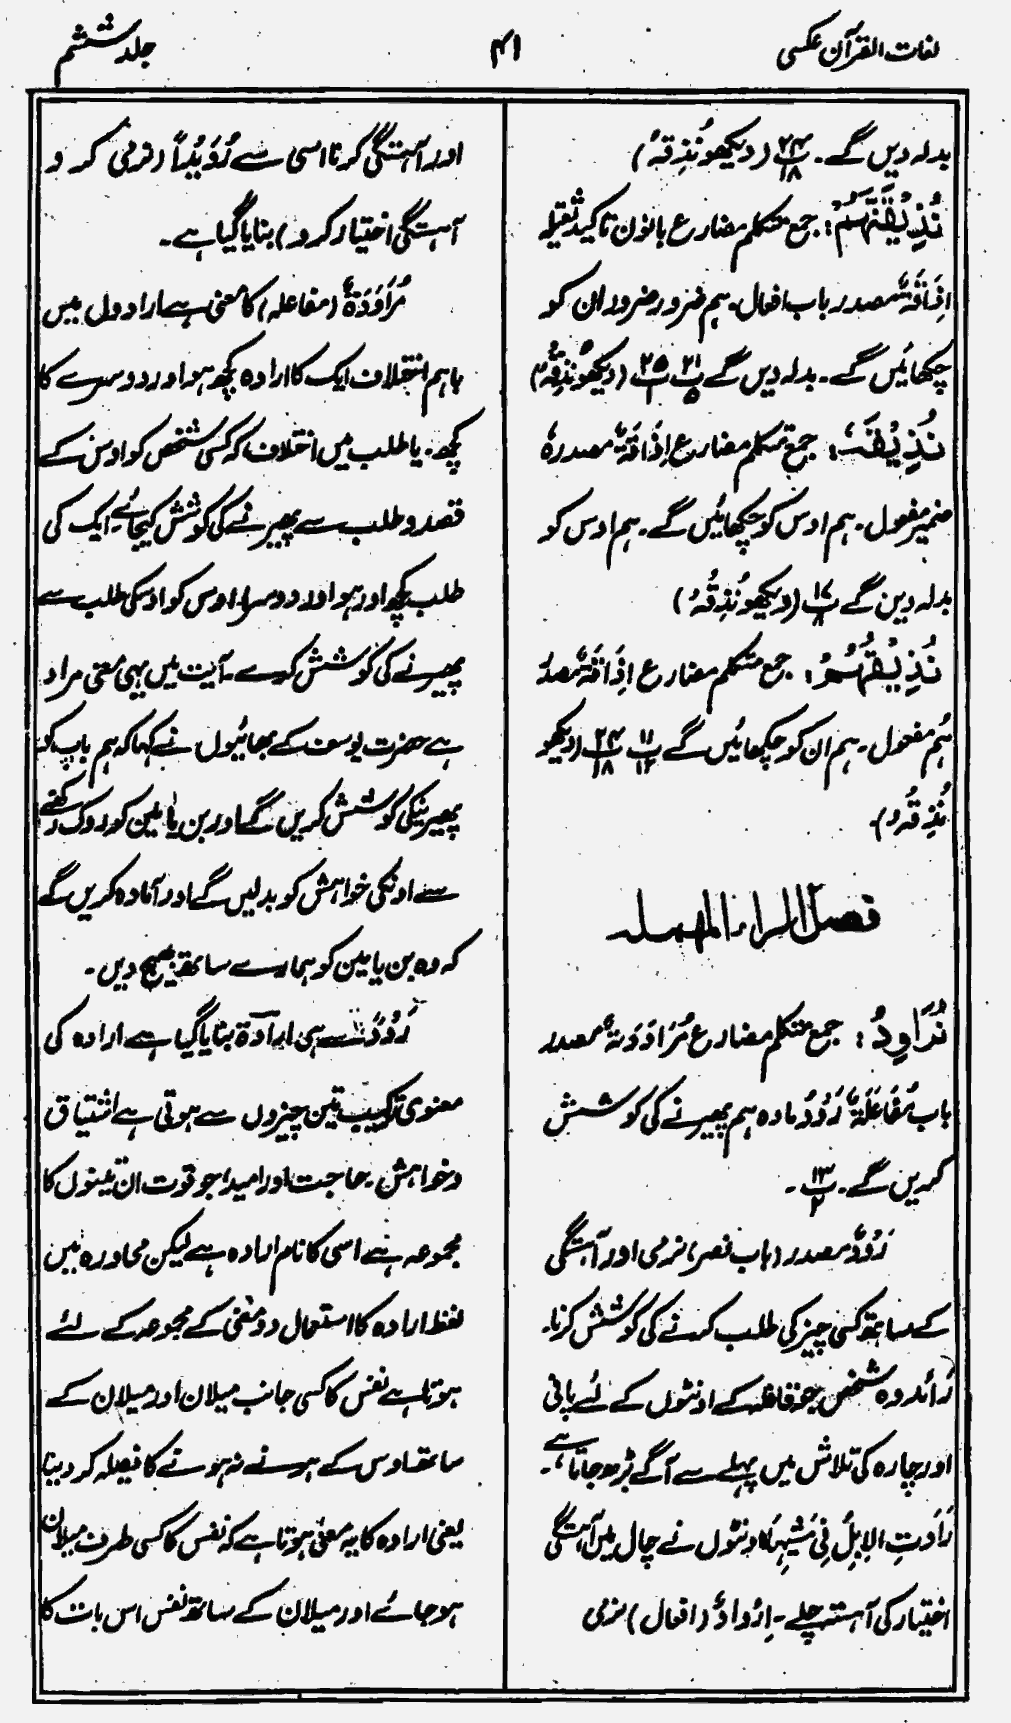 لغات القرآن عکسی
۴۱
جلد ششم
بدلہ دیں گے۔ پ ۲۴/۱۸ (دیکھو نُذِقْہُ)
نُذِیْقَنَّہُمْ: جمع متکلم مضارع بانون تاکید ثقیلہ
اِذَاقَۃٌ مصدر باب افعال۔ ہم ضرور ضرور ان کو
چکھائیں گے۔ بدلہ دیں گے پ ۲۱/۵ پ ۲۵/۱ (دیکھو نُذِقْہُ)
نُذِیْقُہٗ: جمع متکلم مضارع اِذَاقَۃٌ مصدر ہٗ
ضمیر مفعول۔ ہم اوس کو چکھائیں گے۔ ہم اوس کو
بدلہ دین گے پ ۱۷/۸ (دیکھو نُذِقْہُ)
نُذِیْقُہُمْ: جمع متکلم مضارع اِذَاقَۃٌ مصدر
ہُم مفعول۔ ہم ان کو چکھائیں گے پ ۱۱/۱۲ پ ۲۴/۱۸ (دیکھو
نُذِقْہُ)۔
فصل الراء المہملہ
نُرَاوِدُ: جمع متکلم مضارع مُرَاوَدَۃٌ مصدر
باب مُفَاعَلَۃٌ رَوْدٌ مادہ ہم پھیرنے کی کوشش
کریں گے۔ پ ۱۳/۲۔
رَوْدٌ مصدر (باب نصر) نرمی اور آہستگی
کے ساتھ کسی چیز کی طلب کرنے کی کوشش کرنا۔
رَائد وہ شخص جو قافلہ کے اونٹوں کے لئے پانی
اور چارہ کی تلاش میں پہلے سے آگے بڑھ جاتا ہے۔
رَادَتِ الاِبِلُ فِیْ مَشْیِہَا اونٹوں نے چال میں آہستگی
اختیار کی آہستہ چلے۔ اِرْوَادٌ (افعال) نرمی
اور آہستگی کرنا اسی سے رُوَیْداً (نرمی کرو
آہستگی اختیار کرو) بنایا گیا ہے۔
مُرَاوَدَۃٌ (مفاعلہ) کا معنی ہے ارادوں میں
باہم اختلاف ایک کا ارادہ کچھ ہو اور دوسرے کا
کچھ۔ یا طلب میں اختلاف کہ کسی شخص کو اوس کے
قصد و طلب سے پھیرنے کی کوشش کیجائے۔ ایک کی
طلب کچھ اور ہو اور دوسرا اوس کو اوسکی طلب سے
پھیرنے کی کوشش کرے۔ آیت میں یہی معنی مراد
ہے حضرت یوسف کے بھائیوں نے کہا کہ ہم باپ کو
پھیرنیکی کوشش کریں گے اور بن یامین کو روک رکھنے
سے اونکی خواہش کو بدلیں گے اور آمادہ کریں گے
کہ وہ بن یامین کو ہمارے ساتھ بھیج دیں۔
رَوْدٌ سے ہی ارادۃ بنایا گیا ہے ارادہ کی
معنوی ترکیب تین چیزوں سے ہوتی ہے اشتیاق
وخواہش۔ حاجت اور امید جو قوت ان تینوں کا
مجموعہ ہے اسی کا نام ارادہ ہے لیکن محاورہ میں
لفظ ارادہ کا استعمال دو معنی کے مجموعہ کے لئے
ہوتا ہے نفس کا کسی جانب میلان اور میلان کے
ساتھ اوس کے ہونے نہ ہونے کا فیصلہ کر دینا
یعنی ارادہ کا یہ معنی ہوتا ہے کہ نفس کا کسی طرف میلان
ہو جائے اور میلان کے ساتھ نفس اس بات کا